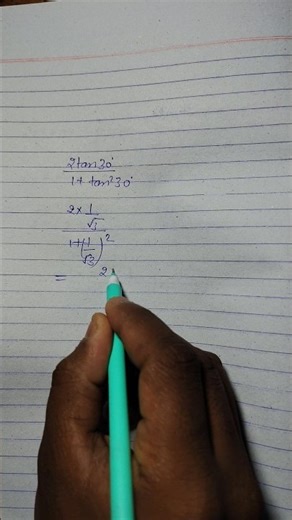 2tan30°
1+ tan²30°
2×1
√3
1+(1/√3)²
= 2